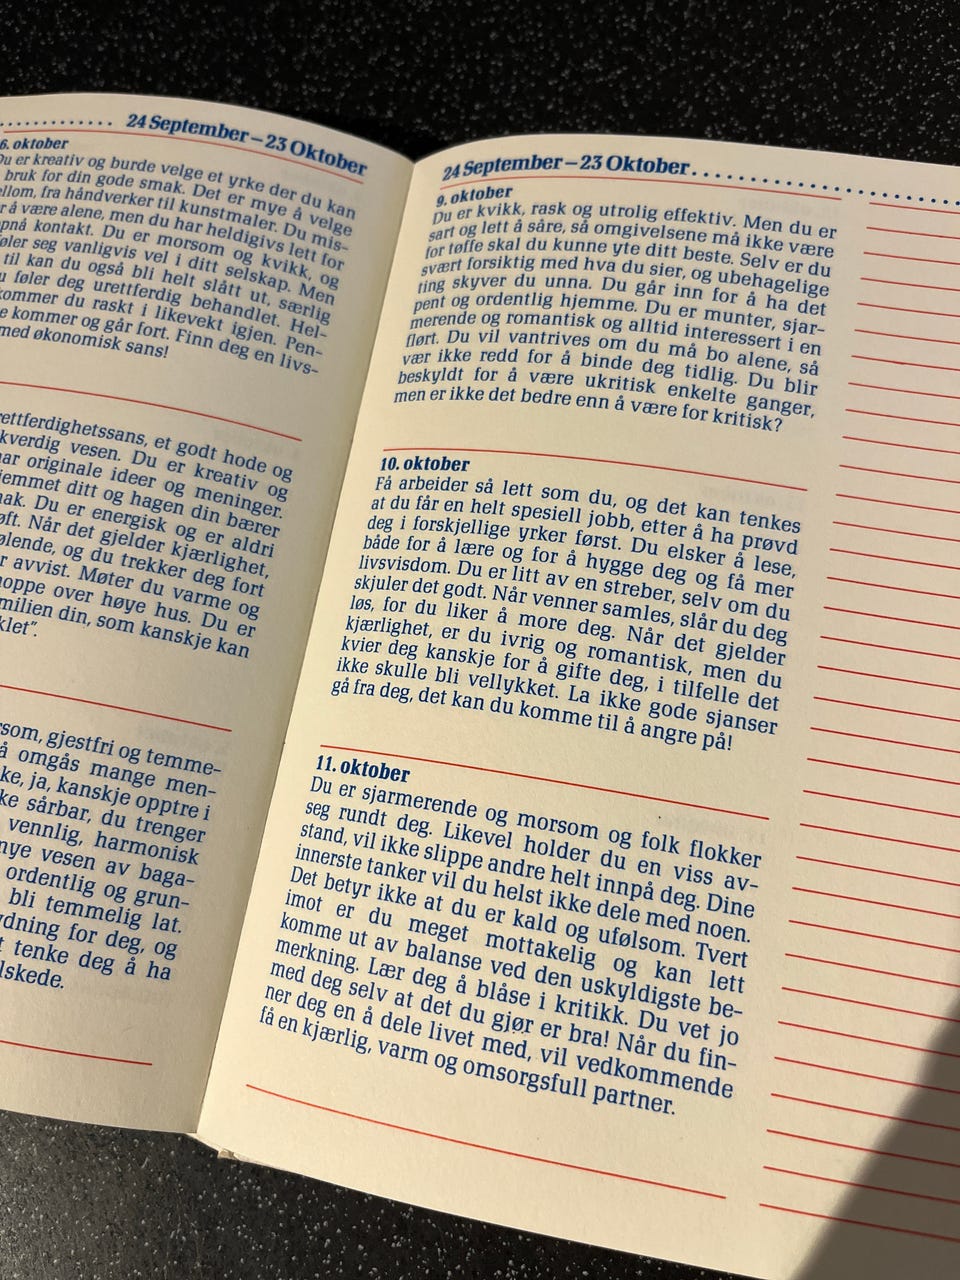 24 September – 23 Oktober
6. oktober
Du er kreativ og burde velge et yrke der du kan
bruk for din gode smak. Det er mye å velge
ellom, fra håndverker til kunstmaler. Du mis-
r å være alene, men du har heldigivs lett for
pnå kontakt. Du er morsom og kvikk, og
øler seg vanligvis vel i ditt selskap. Men
til kan du også bli helt slått ut, særlig
u føler deg urettferdig behandlet. Hel-
kommer du raskt i likevekt igjen. Pen-
e kommer og går fort. Finn deg en livs-
med økonomisk sans!
rettferdighetssans, et godt hode og
kverdig vesen. Du er kreativ og
har originale ideer og meninger.
jemmet ditt og hagen din bærer
ak. Du er energisk og er aldri
øft. Når det gjelder kjærlighet,
ølende, og du trekker deg fort
r avvist. Møter du varme og
hoppe over høye hus. Du er
milien din, som kanskje kan
klet”.
som, gjestfri og temme-
å omgås mange men-
ke, ja, kanskje opptre i
ke sårbar, du trenger
vennlig, harmonisk
mye vesen av baga-
ordentlig og grun-
bli temmelig lat.
ydning for deg, og
t tenke deg å ha
lskede.
24 September – 23 Oktober
9. oktober
Du er kvikk, rask og utrolig effektiv. Men du er
sart og lett å såre, så omgivelsene må ikke være
for tøffe skal du kunne yte ditt beste. Selv er du
svært forsiktig med hva du sier, og ubehagelige
ting skyver du unna. Du går inn for å ha det
pent og ordentlig hjemme. Du er munter, sjar-
merende og romantisk og alltid interessert i en
flørt. Du vil vantrives om du må bo alene, så
vær ikke redd for å binde deg tidlig. Du blir
beskyldt for å være ukritisk enkelte ganger,
men er ikke det bedre enn å være for kritisk?
10. oktober
Få arbeider så lett som du, og det kan tenkes
at du får en helt spesiell jobb, etter å ha prøvd
deg i forskjellige yrker først. Du elsker å lese,
både for å lære og for å hygge deg og få mer
livsvisdom. Du er litt av en streber, selv om du
skjuler det godt. Når venner samles, slår du deg
løs, for du liker å more deg. Når det gjelder
kjærlighet, er du ivrig og romantisk, men du
kvier deg kanskje for å gifte deg, i tilfelle det
ikke skulle bli vellykket. La ikke gode sjanser
gå fra deg, det kan du komme til å angre på!
11. oktober
Du er sjarmerende og morsom og folk flokker
seg rundt deg. Likevel holder du en viss av-
stand, vil ikke slippe andre helt innpå deg. Dine
innerste tanker vil du helst ikke dele med noen.
Det betyr ikke at du er kald og ufølsom. Tvert
imot er du meget mottakelig og kan lett
komme ut av balanse ved den uskyldigste be-
merkning. Lær deg å blåse i kritikk. Du vet jo
med deg selv at det du gjør er bra! Når du fin-
ner deg en å dele livet med, vil vedkommende
få en kjærlig, varm og omsorgsfull partner.